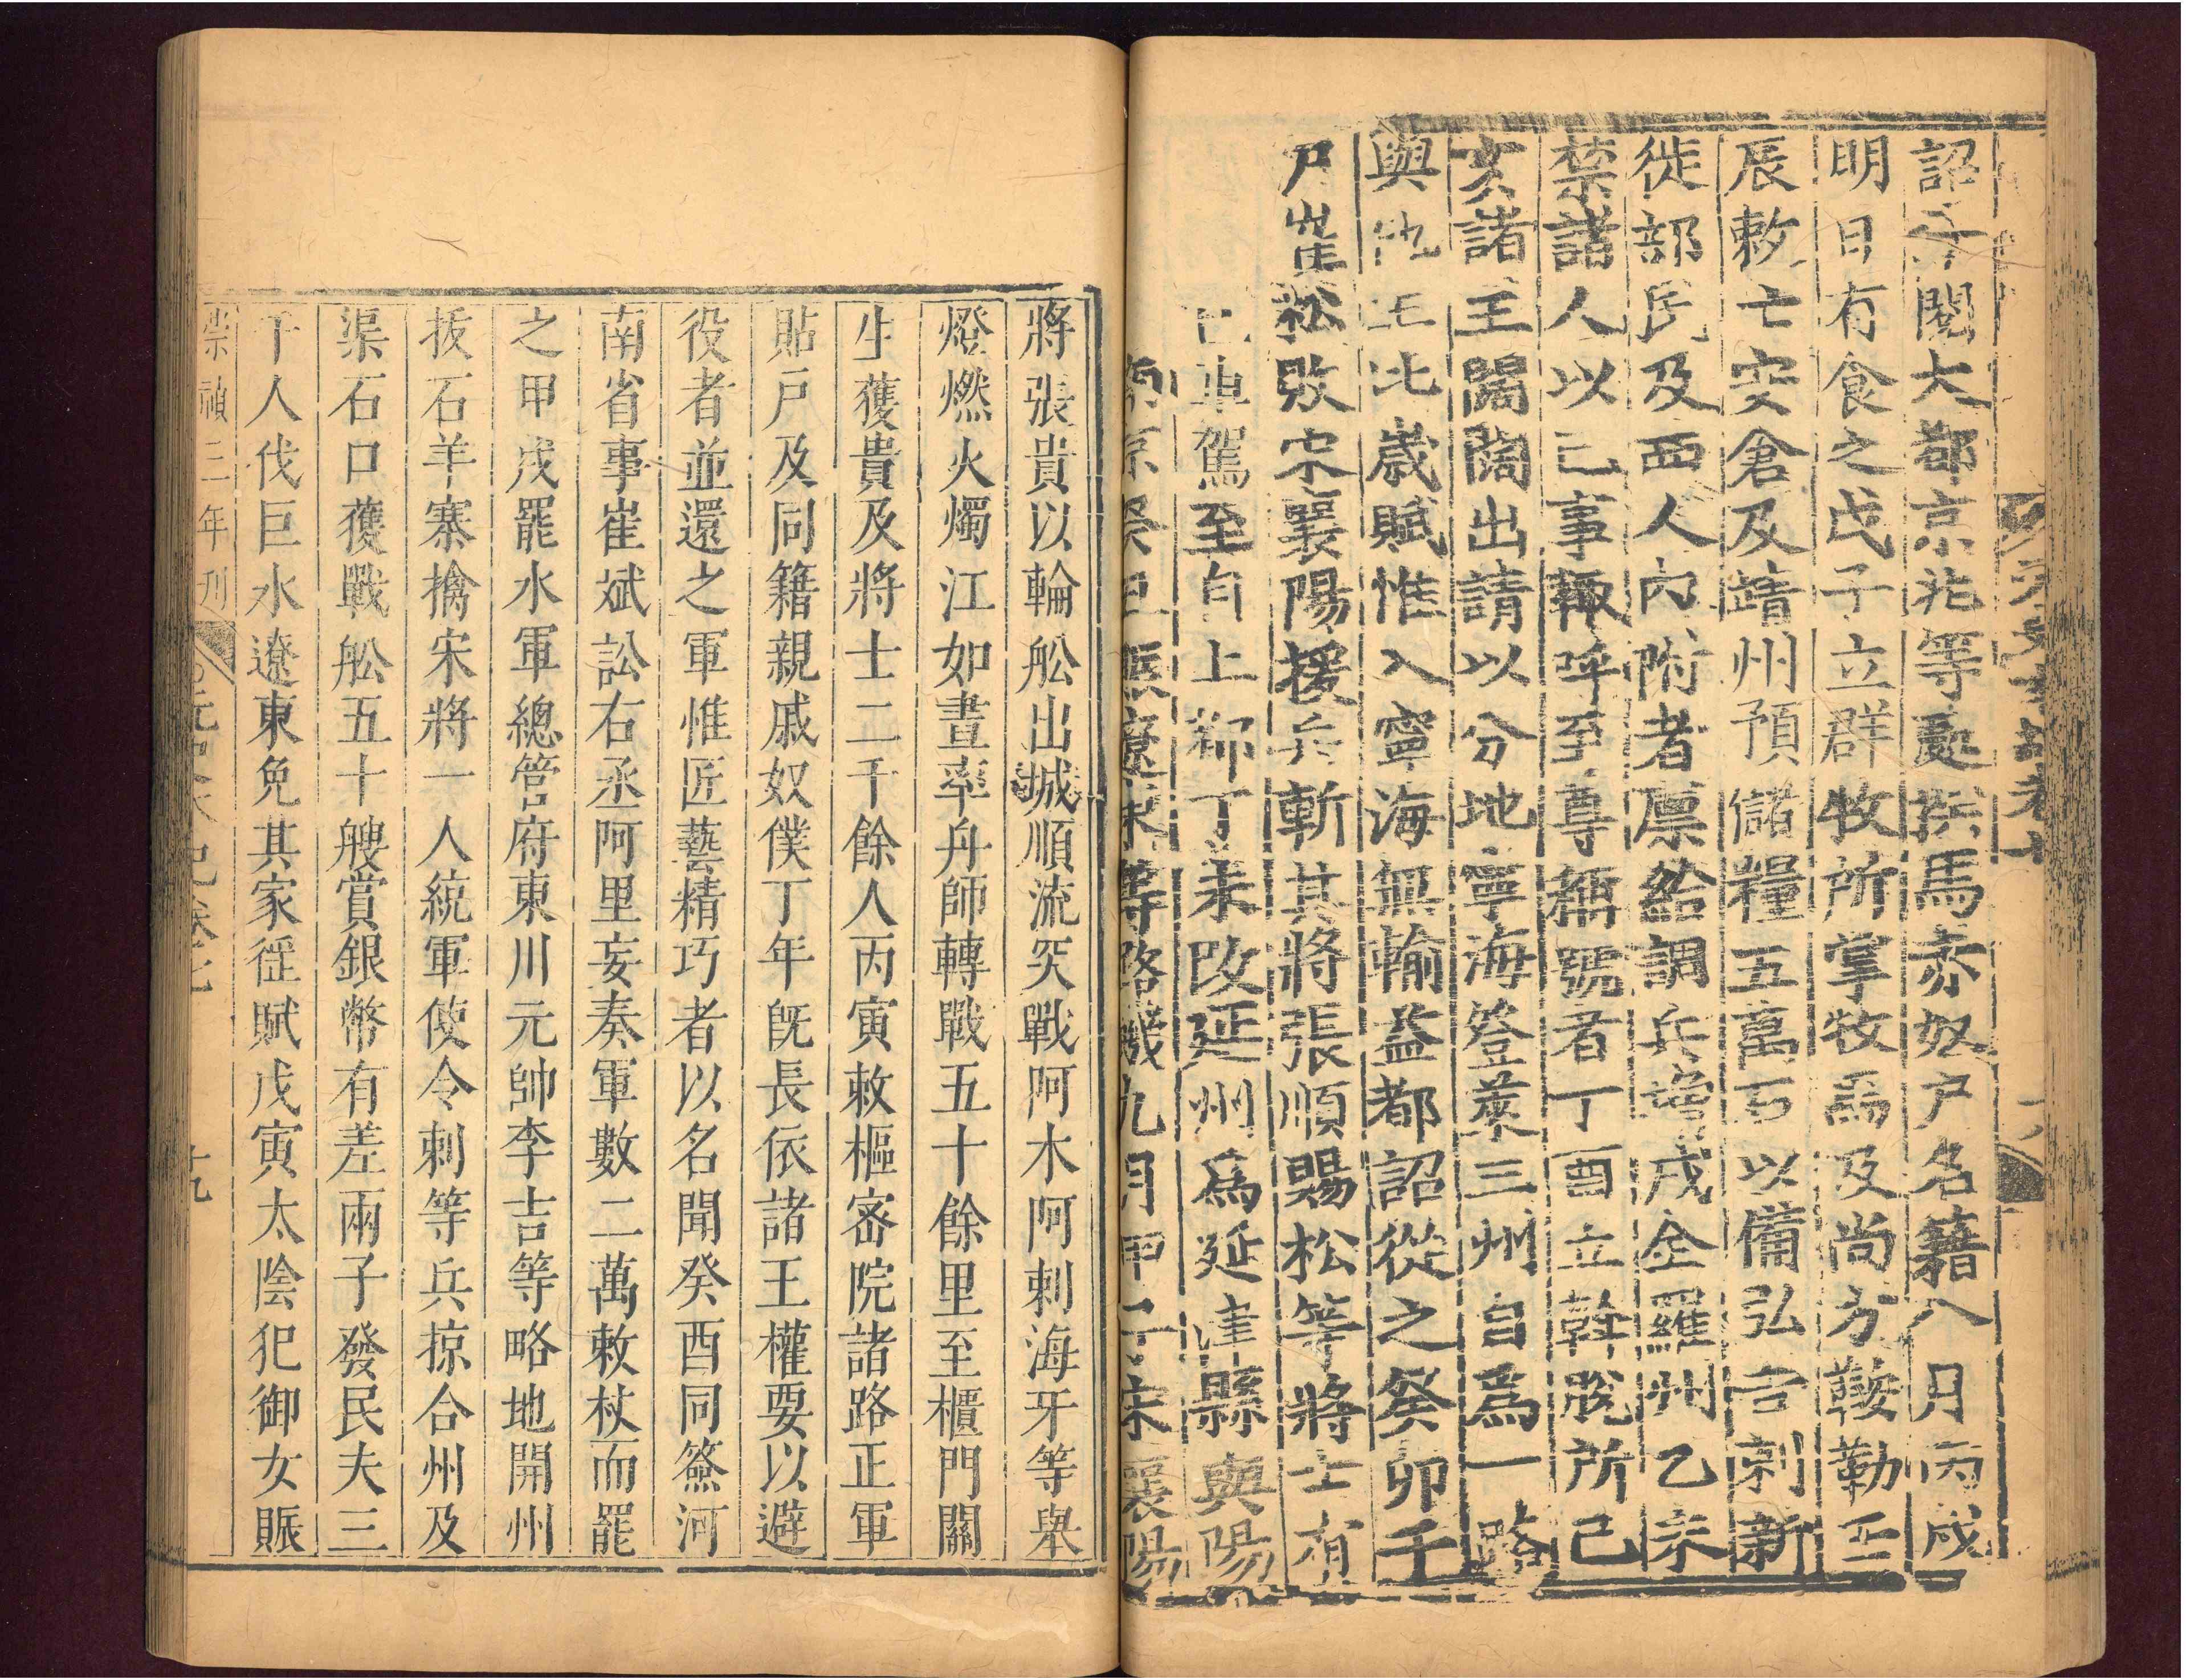 詔分閱大都京兆等處探馬赤奴戶名籍八月丙戌
明日有食之戊子立群牧所掌牧馬及尚方鞍勒壬
辰敕亡宋倉及靖州預儲糧五萬石以備弘吉剌新
徙部民及西人內附者廩給調兵增戍全羅州乙未
禁諸人以己事輒呼至尊稱號者丁酉立斡脫所己
亥諸王闊闊出請以分地寧海登萊三州自為一路
與他王比歲賦惟入寧海無輸益都詔從之癸卯千
戶崔松敗宋襄陽援兵斬其將張順賜松等將士有
車駕至自上都丁未改延州為延津縣與陽
等路蟣九月甲子宋襄陽
將張貴以輪船出城順流突戰阿木阿剌海牙等舉
燈燃火燭江如晝率舟師轉戰五十餘里至櫃門關
生獲貴及將士二千餘人丙寅敕樞密院諸路正軍
貼戶及同籍親戚奴僕丁年既長依諸王權要以避
役者並還之軍惟匠藝精巧者以名聞癸酉同簽河
南省事崔斌訟右丞阿里妄奏軍數二萬敕杖而罷
之甲戌罷水軍總管府東川元帥李吉等略地開州
拔石羊寨擒宋將一人統軍使令剌等兵掠合州及
渠石口獲戰船五十艘賞銀幣有差兩子發民夫三
千人伐巨水遼東免其家徭賦戊寅太陰犯御女賑
崇禎三年刊 元史本紀卷七 十九